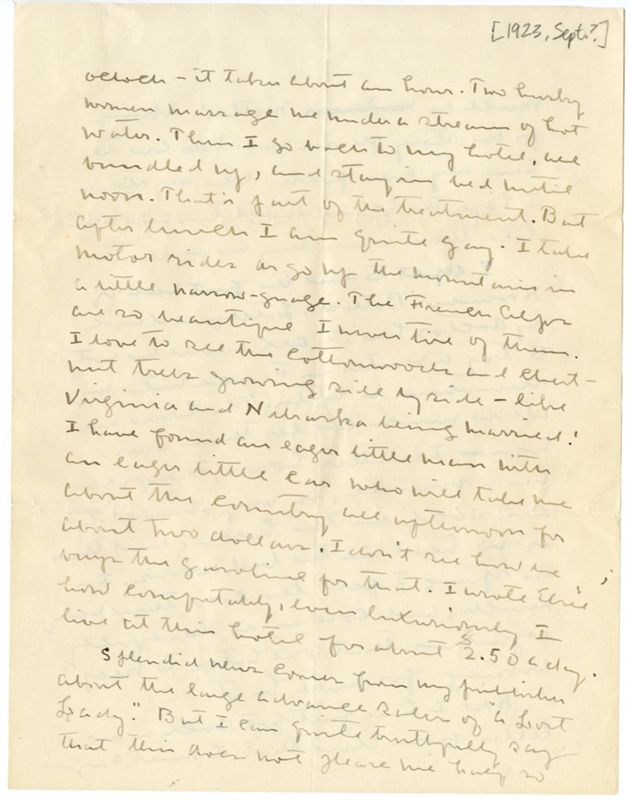 [1923, Sept?]
oclock – it takes about an hour. Two husky
women massage me under a stream of hot
water. Then I go back to my hotel, all
bundled up, and stay in bed until
noon. That's part of the treatment. But
after lunch I am quite gay. I take
motor rides or go up the mountains in
a little narrow-guage. The French Alps
are so beautiful I never tire of them.
I love to see the cottonwoods and chest-
nut trees growing side by side – like
Virginia and Nebraska being married!
I have found an eager little man with
an eager little car who will take me
about the country all afternoon for
about two dollars. I don't see how he
buys the gasoline for that. I wrote Elsie
how comfortably, even luxuriously I
live at this hotel for about $2.50 a day.
Splendid news comes from my publisher
about the large advance sales of "A Lost
Lady." But I can quite truthfully say
that this does not please me half so